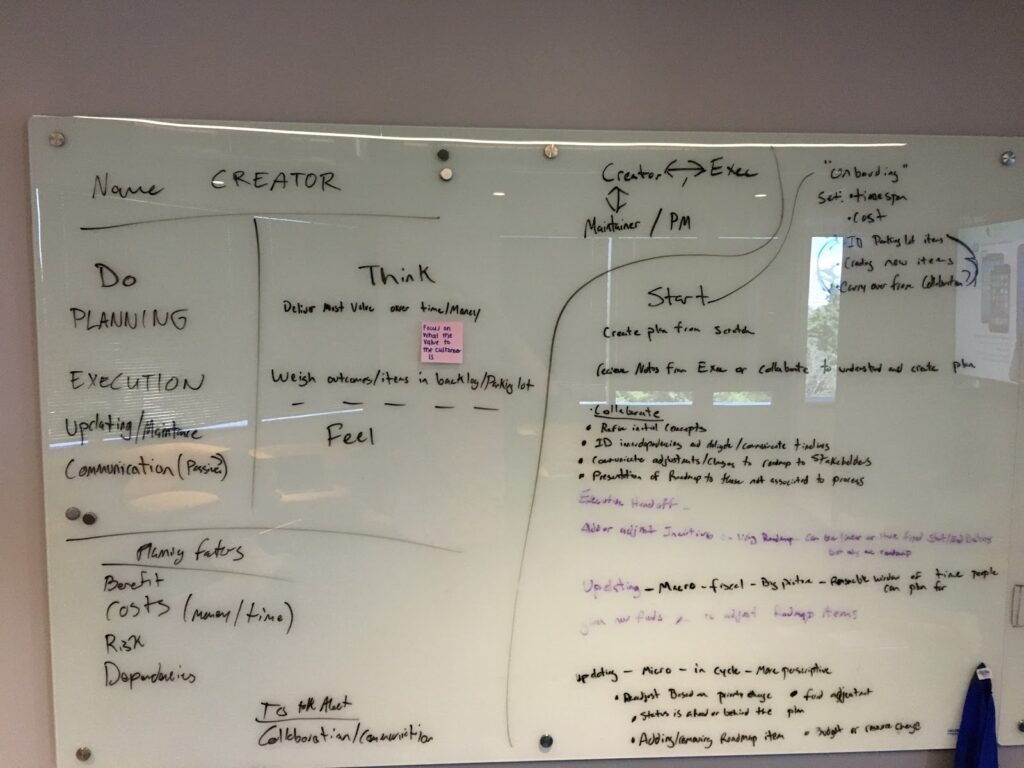 Name CREATOR
Do
PLANNING
EXECUTION
Updating/Maintance
Communication (Passive)
Think
Deliver Most Value over time/Money
Focus on
what the
value to
the customer
is
Weigh outcomes/items in backlog/Parking lot
Feel
Planing faters
Benefit
Costs (money/time)
Risk
Dependencies
To talk About
Collaboration/Communiction
Creator ↔ Exec
Maintainer / PM
"Onboarding"
Set: • timespan
• Cost
• ID Parking lot items
• Creating new items
• Carry over from Collaboration
Start
Create plan from scratch
recieve Notes from Exec or collaborate to understand and create plan
• Collaborate
• Refine initial concepts
• ID interdependencies and /communicate timelines
• Communicate adjustments/Changes to roadmap to Stakeholders
• Presentation of Roadmap to those not associated to process
Executive Handoff -
Add or adjust - using Roadmap - Can be or have fixed Start/End
but on roadmap
Updating - Macro - fiscal - Big picture - Reasonable window of time people
can plan for
to adjust Roadmap items
updating - Micro - in cycle - More perscriptive
• Readjust Based on change • fund adjustment
• Status is ahead or behind the plan
• Adding/removing Roadmap item • Budget or resource change